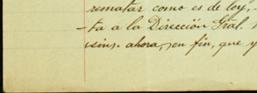 rematar como es de ley,
-ta a la Dirección Gral.
ahora, en fin, que y